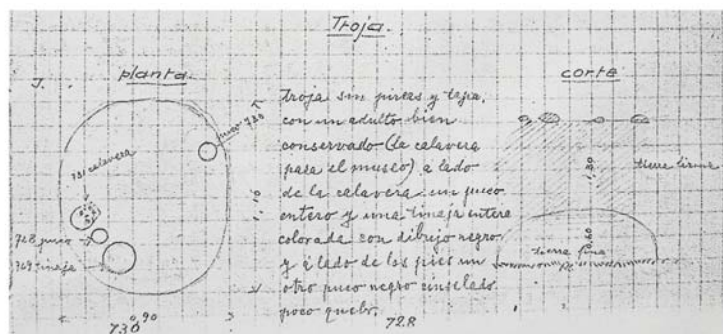 Troja.
J.
planta
corte
puco 730
731 calavera
728 puco
729 tinaja
1,10
0,90
730
troja sin pircas y tapa,
con un adulto bien
conservado (la calavera
para el museo) a lado
de la calavera un puco
entero y una tinaja entera
colorada con dibujo negro
y a lado de los pies un
otro puco negro cinselado
poco quebr.
728
tierra firme
1,80
0,60
tierra fina